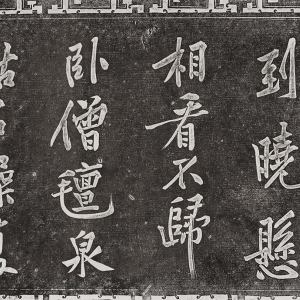 到曉懸
相看不歸
卧僧氊泉